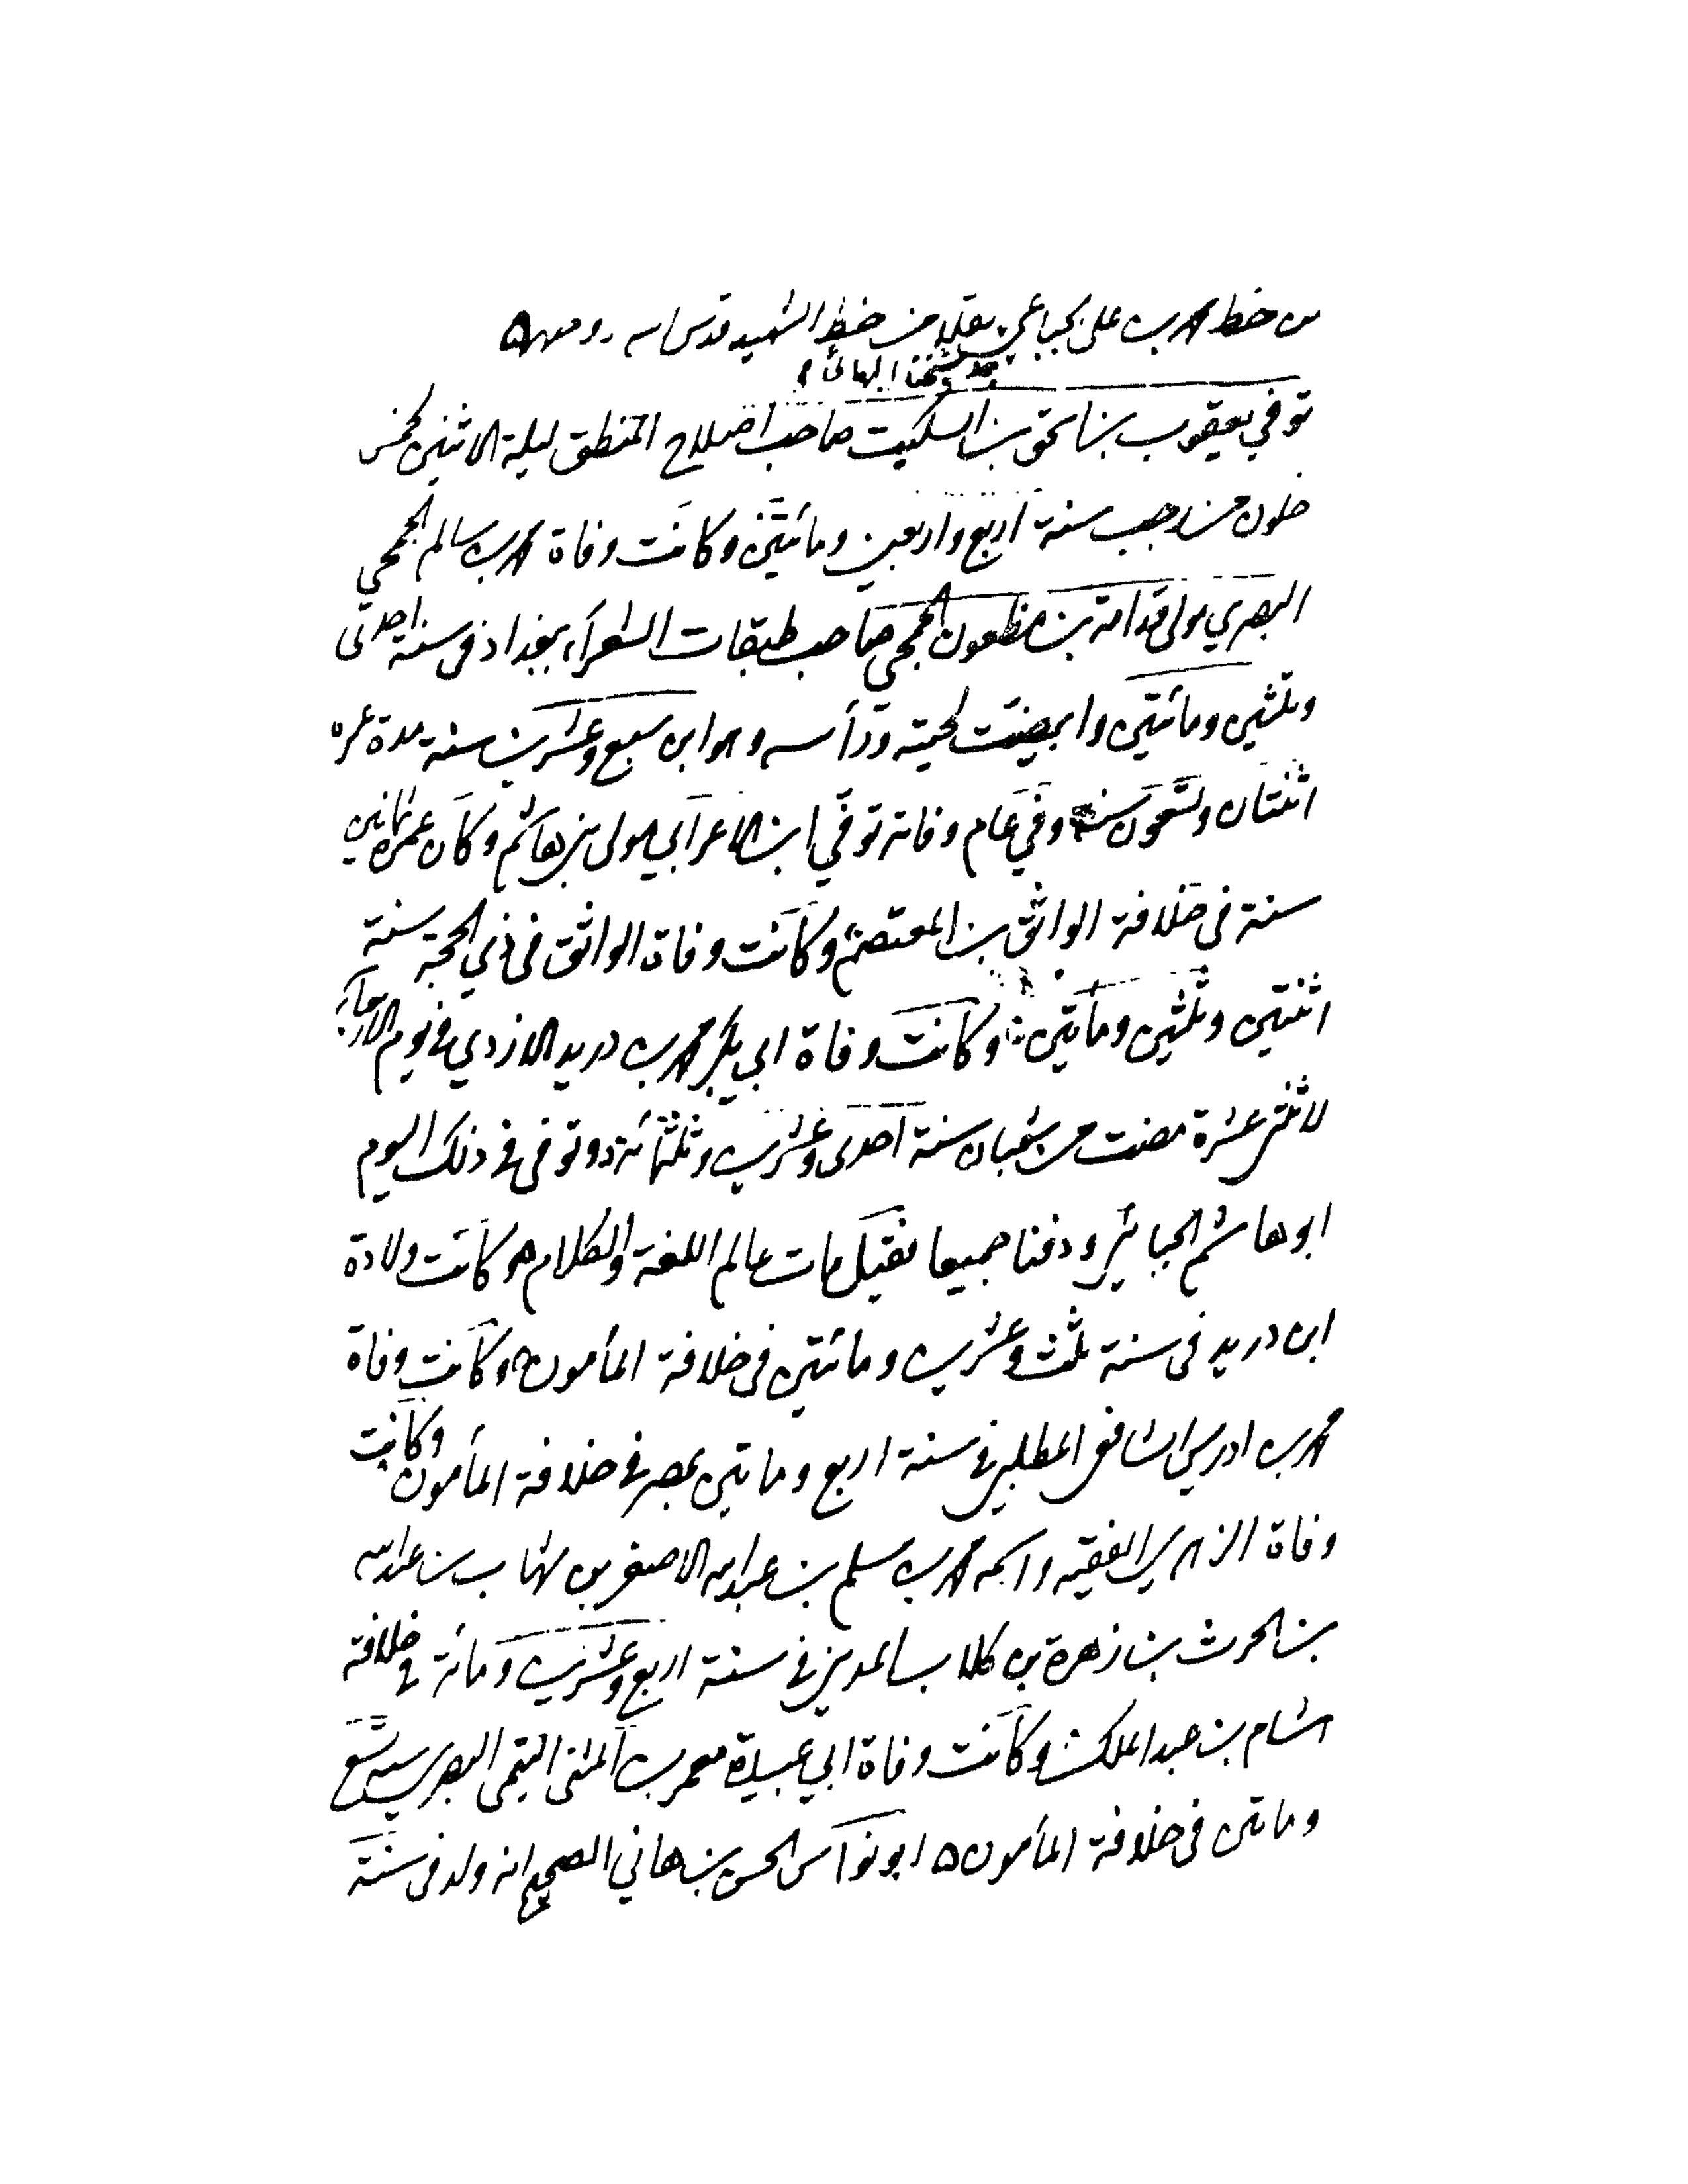 من خط محمد بن علي الجباعي نقلا من خط الشهيد قدس الله روحهما
جد شيخنا البهائي
توفي يعقوب بن اسحق بن السكيت صاحب اصلاح المنطق ليلة الاثنين لخمس
خلون من رجب سنة اربع واربعين ومائتين وكانت وفاة محمد بن سالم الجمحي
البصري مولى قدامة بن مظعون الجمحي صاحب طبقات الشعراء ببغداد في سنة احدى
وثلثين ومائتين وابيضت لحيته ورأسه وهو ابن سبع وعشرين سنة مدة عمره
اثنتان وتسعون سنة وفي عام وفاته توفي ابن الاعرابي مولى بني هاشم وكان عمره ثمانين
سنة في خلافة الواثق بن المعتصم وكانت وفاة الواثق في ذي الحجة سنة
اثنتين وثلثين ومأتين وكانت وفاة ابي بكر محمد بن دريد الازدي في يوم الاربعاء
لاثنتي عشرة مضت من شعبان سنة احدى وعشرين وثلثمائة وتوفي في ذلك اليوم
ابو هاشم الجبائي ودفنا جميعا فقيل مات عالم اللغة والكلام وكانت ولادة
ابن دريد في سنة ثلث وعشرين ومائتين في خلافة المأمون وكانت وفاة
محمد بن ادريس الشافعي المطلبي في سنة اربع ومأتين بمصر في خلافة المأمون وكانت
وفاة الزهري الفقيه واسمه محمد بن مسلم بن عبد الله الاصغر بن شهاب بن عبد الله
بن الحرث بن زهرة بن كلاب المديني في سنة اربع وعشرين ومائة في خلافة
هشام بن عبد الملك وكانت وفاة ابي عبيدة معمر بن المثنى التيمي البصري سنة تسع
ومأتين في خلافة المأمون ابو نواس الحسن بن هاني الصحيح انه ولد في سنة